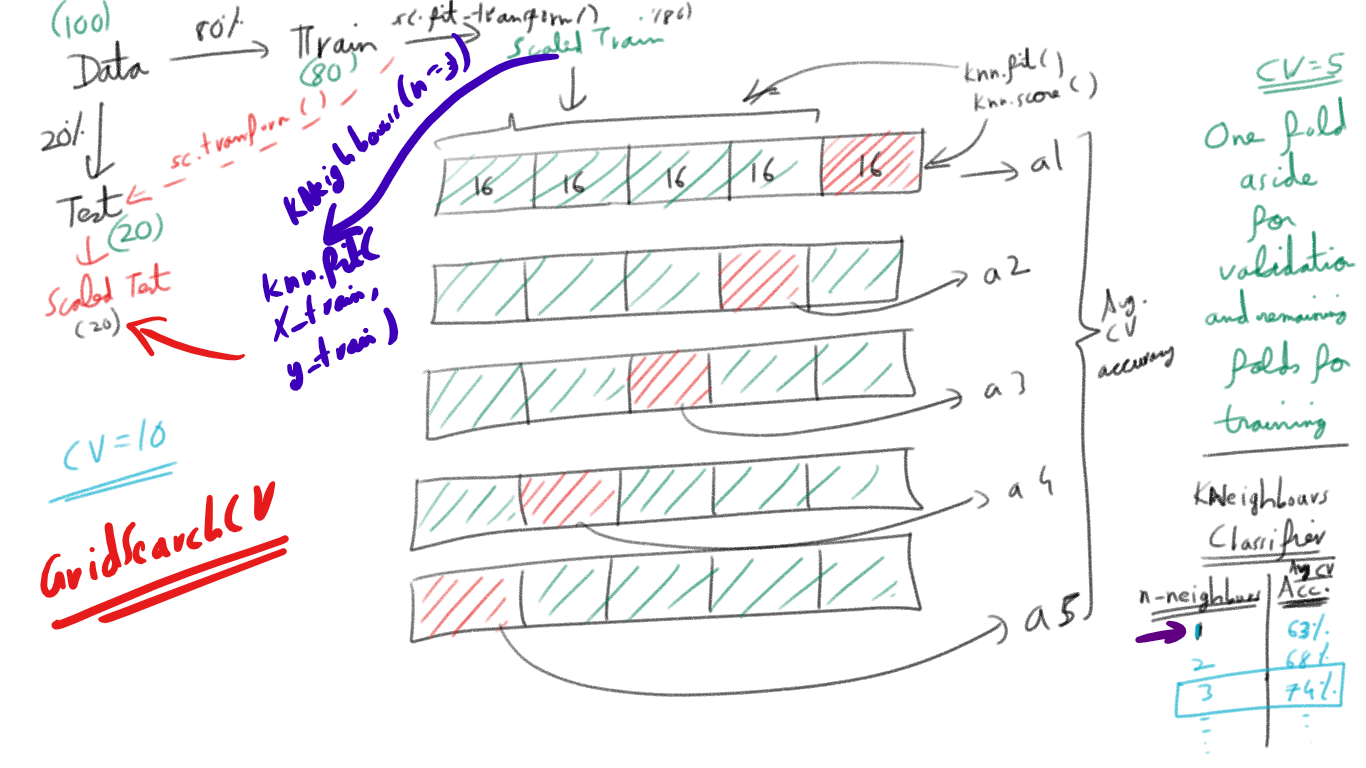 (100)
Data
80%
Train
(80)
sc.fit_transform()
(80)
Scaled Train
20%
sc.transform()
Test
(20)
Scaled Test
(20)
KNeighbours(n=3)
knn.fit(
X_train,
y_train)
CV=10
GridSearchCV
knn.fit()
knn.score()
16 16 16 16 16
a1
a2
a3
a4
a5
Avg.
CV
accuracy
CV=5
One fold
aside
for
validation
and remaining
folds for
training
KNeighbours
Classifier
Avg CV
n-neighbours Acc.
1 63%
2 68%
3 74%